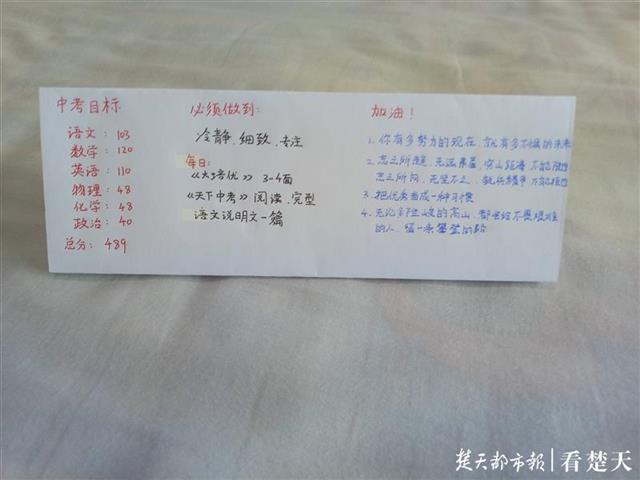 中考目标
语文：103
数学：120
英语：110
物理：48
化学：48
政治：40
总分：489
必须做到：
冷静、细致、专注
每日：
《太3培优》 3-4面
《天下中考》阅读、完型
语文说明文一篇
加油！
1、你有多努力的现在，就有多不惧的未来
2、志之所趋，无远弗届，穷山距海，不能限也
志之所向，无坚不入，锐兵精甲，不能御也
3、把优秀当成一种习惯
4、无论多险峻的高山，都会给不畏艰难
的人，留一条攀登的路
楚天都市报|看楚天